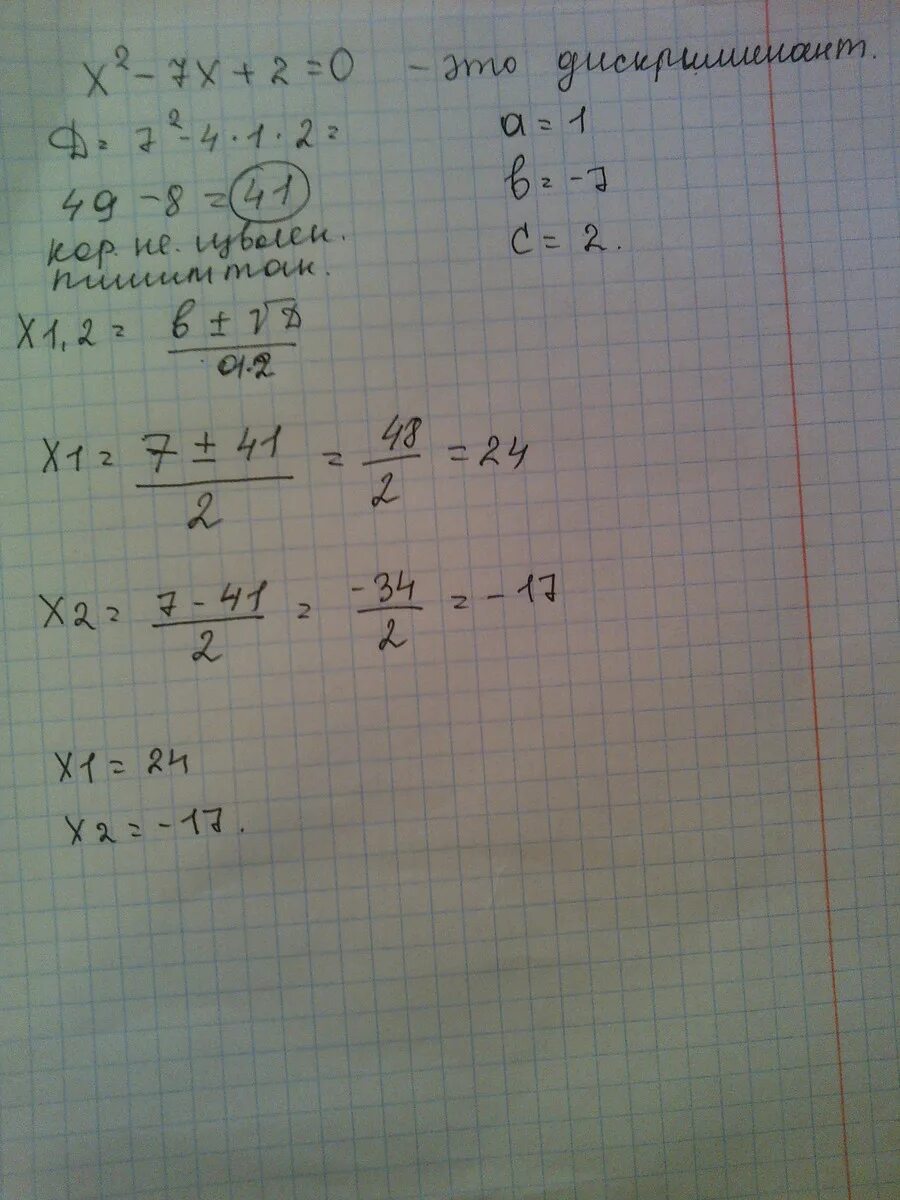 x² - 7x + 2 = 0 - это дискриминант.
Д = 7² - 4 · 1 · 2 =
49 - 8 = 41
кор. не.
пишим так.
a = 1
в = -7
c = 2.
x1,2 = (в ± √Д) / (a·2)
x1 = (7 ± 41) / 2 = 48 / 2 = 24
x2 = (7 - 41) / 2 = -34 / 2 = -17
x1 = 24
x2 = -17.